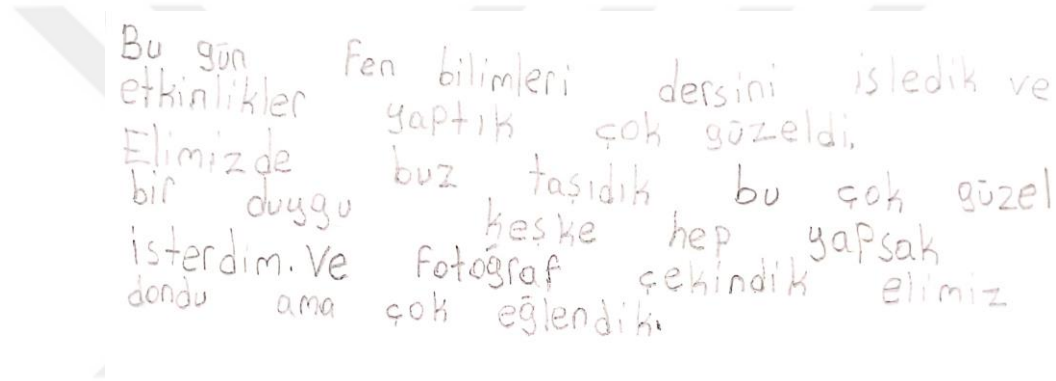 Bu gün Fen bilimleri dersini işledik ve
etkinlikler yaptık çok güzeldi.
Elimizde buz taşıdık bu çok güzel
bir duygu keşke hep yapsak
isterdim. Ve fotoğraf çekindik elimiz
dondu ama çok eğlendik.